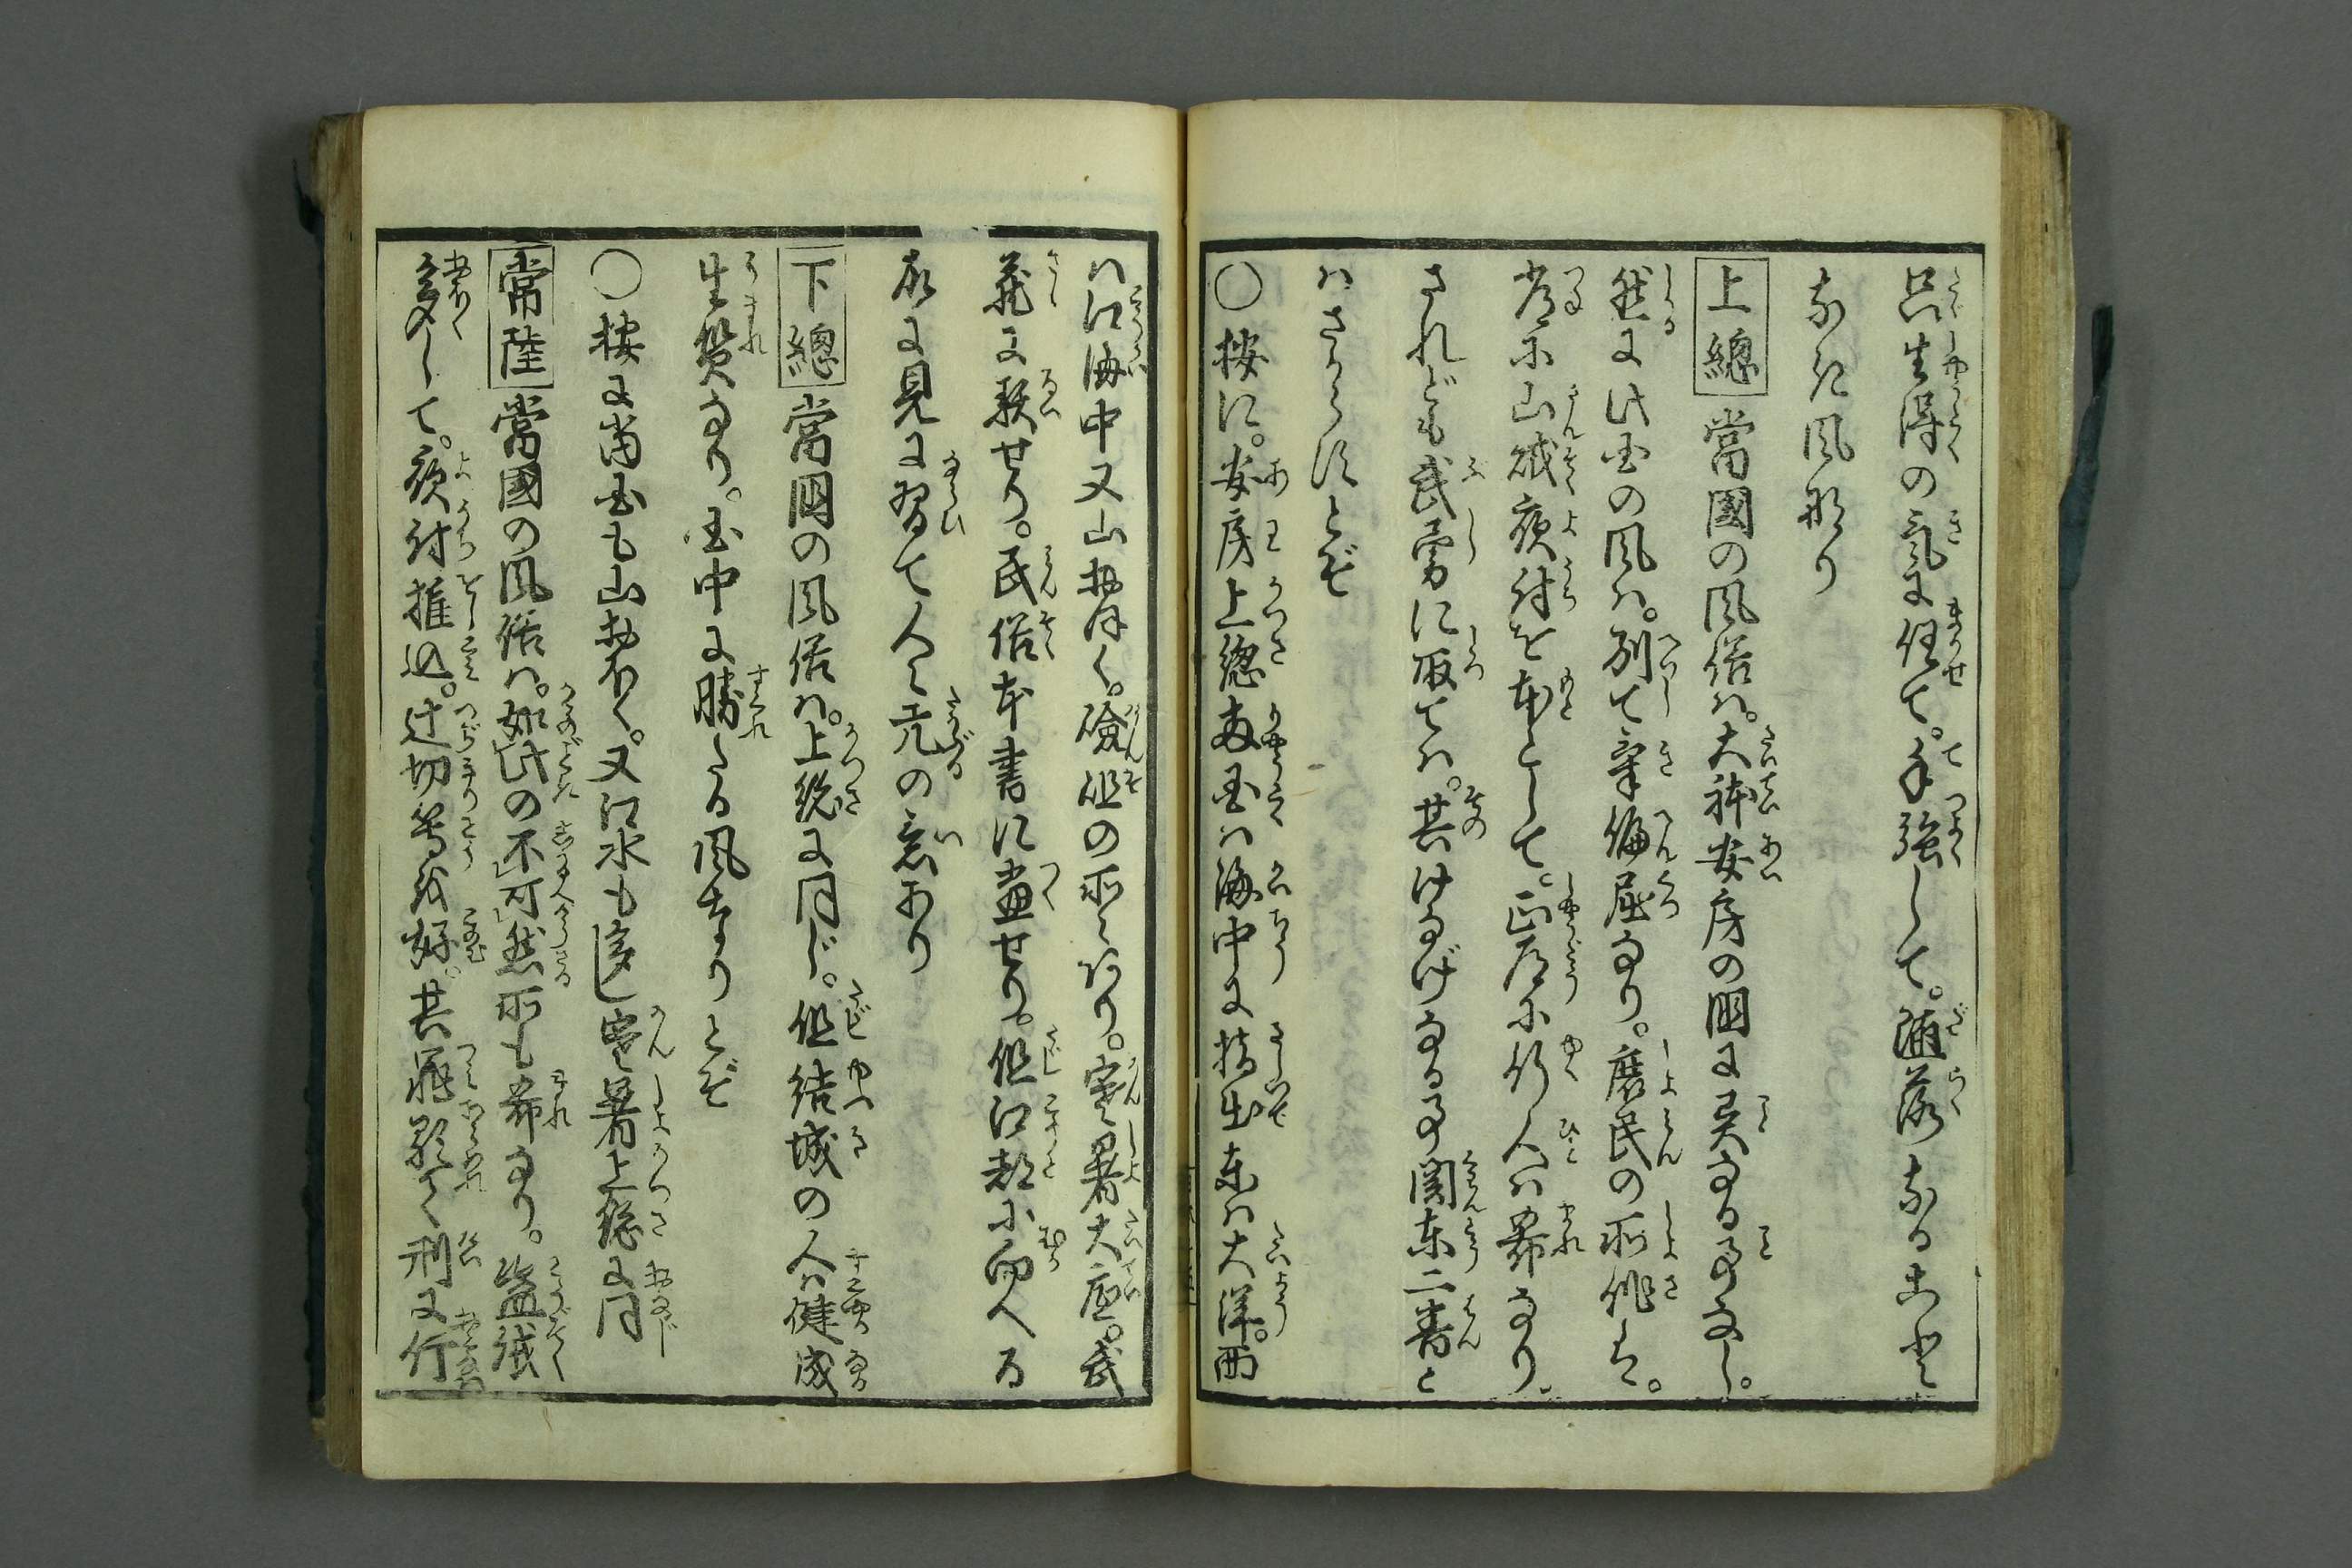 只生得の氣に任て。手強して。洒落なるこゝと
なき風形り
上總 當國の風俗ハ。大躰安房の国に異なる事なし。
然に此国の風ハ。別て氣偏屈なり。庶民の所作も。
常に山賊夜討を本として。正道に行人ハ希なり
されども武勇に取てハ。其けなげなる事関東二番と
ハさがらずとぞ
○按に。安房上總両国ハ海中に指出東ハ大洋。西
ハ江海中又山おほく。嶮岨の所々あり。寒暑大底。武
藏に類せり。民俗本書に盡せり。但江都に向へる
故に見に習て人々亢の意あり
下總 當国の風俗ハ。上総に同じ。但結城の人ハ健成
生質なり。国中に勝たる風なりとぞ
○按に当国も山おほく。又江水も多し寒暑上総に同
常陸 當國の風俗ハ。如此の不可然所も希なり。盗賊
多して。夜討推込。辻切等を好。其罪顕て刑に行